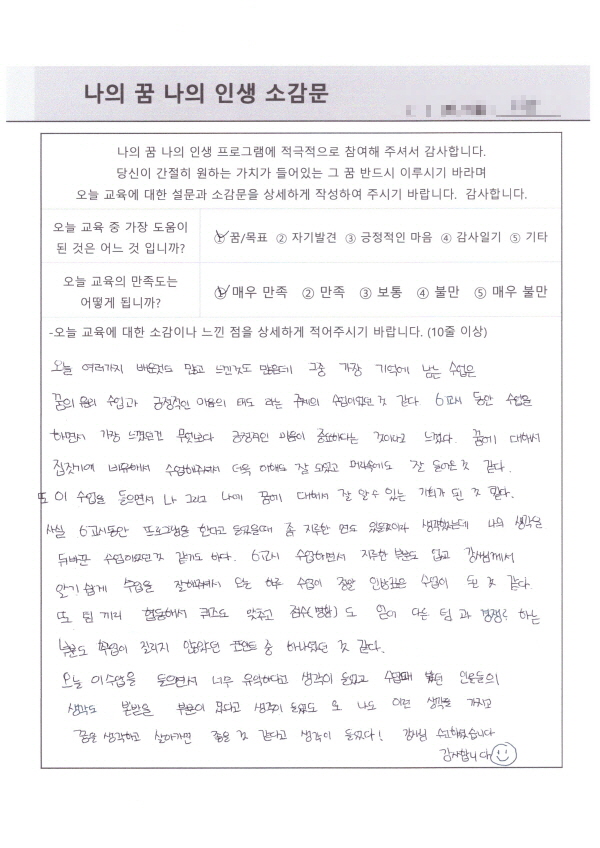 나의 꿈 나의 인생 소감문
나의 꿈 나의 인생 프로그램에 적극적으로 참여해 주셔서 감사합니다.
당신이 간절히 원하는 가치가 들어있는 그 꿈 반드시 이루시기 바라며
오늘 교육에 대한 설문과 소감문을 상세하게 작성하여 주시기 바랍니다. 감사합니다.
오늘 교육 중 가장 도움이
된 것은 어느 것 입니까?
① 꿈/목표 ② 자기발견 ③ 긍정적인 마음 ④ 감사일기 ⑤ 기타
오늘 교육의 만족도는
어떻게 됩니까?
① 매우 만족 ② 만족 ③ 보통 ④ 불만 ⑤ 매우 불만
-오늘 교육에 대한 소감이나 느낀 점을 상세하게 적어주시기 바랍니다. (10줄 이상)
오늘 여러가지 배운것도 많고 느낀것도 많은데 그중 가장 기억에 남는 수업은
꿈의 수업과 긍정적인 마음의 태도 라는 주제의 수업이었던 것 같다. 6교시 동안 수업을
하면서 가장 느꼈던건 무엇보다 긍정적인 마음이 중요하다는 것이라고 느꼈다. 꿈에 대해서
집짓기에 비유해서 수업해주셔서 더욱 이해도 잘 되었고 머리속에도 잘 들어온 것 같다.
또 이 수업을 들으면서 나 그리고 나에 꿈에 대해서 잘 알 수 있는 기회가 된 것 같다.
사실 6교시동안 프로그램을 한다고 들었을때 좀 지루한 면도 있을것이라 생각했는데 나의 생각을
뒤바꾼 수업이었던것 같기도 하다. 6교시 수업하면서 지루한 부분도 없고 강사님께서
알기 쉽게 수업을 잘해주셔서 오늘 하루 수업이 정말 인상깊은 수업이 된 것 같다.
또 팀 끼리 협동해서 퀴즈도 맞추고 점수(명함)도 얻어 다른 팀과 경쟁도 하는
부분도 수업이 질리지 않았던 포인트 중 하나였던 것 같다.
오늘 이수업을 들으면서 너무 유익하다고 생각이 들었고 수업때 봤던 인물들의
생각도 본받을 부분이 많다고 생각이 들었고 또 나도 이런 생각을 가지고
꿈을 생각하고 살아가면 좋을 것 같다고 생각이 들었다! 강사님 수고하셨습니다
감사합니다